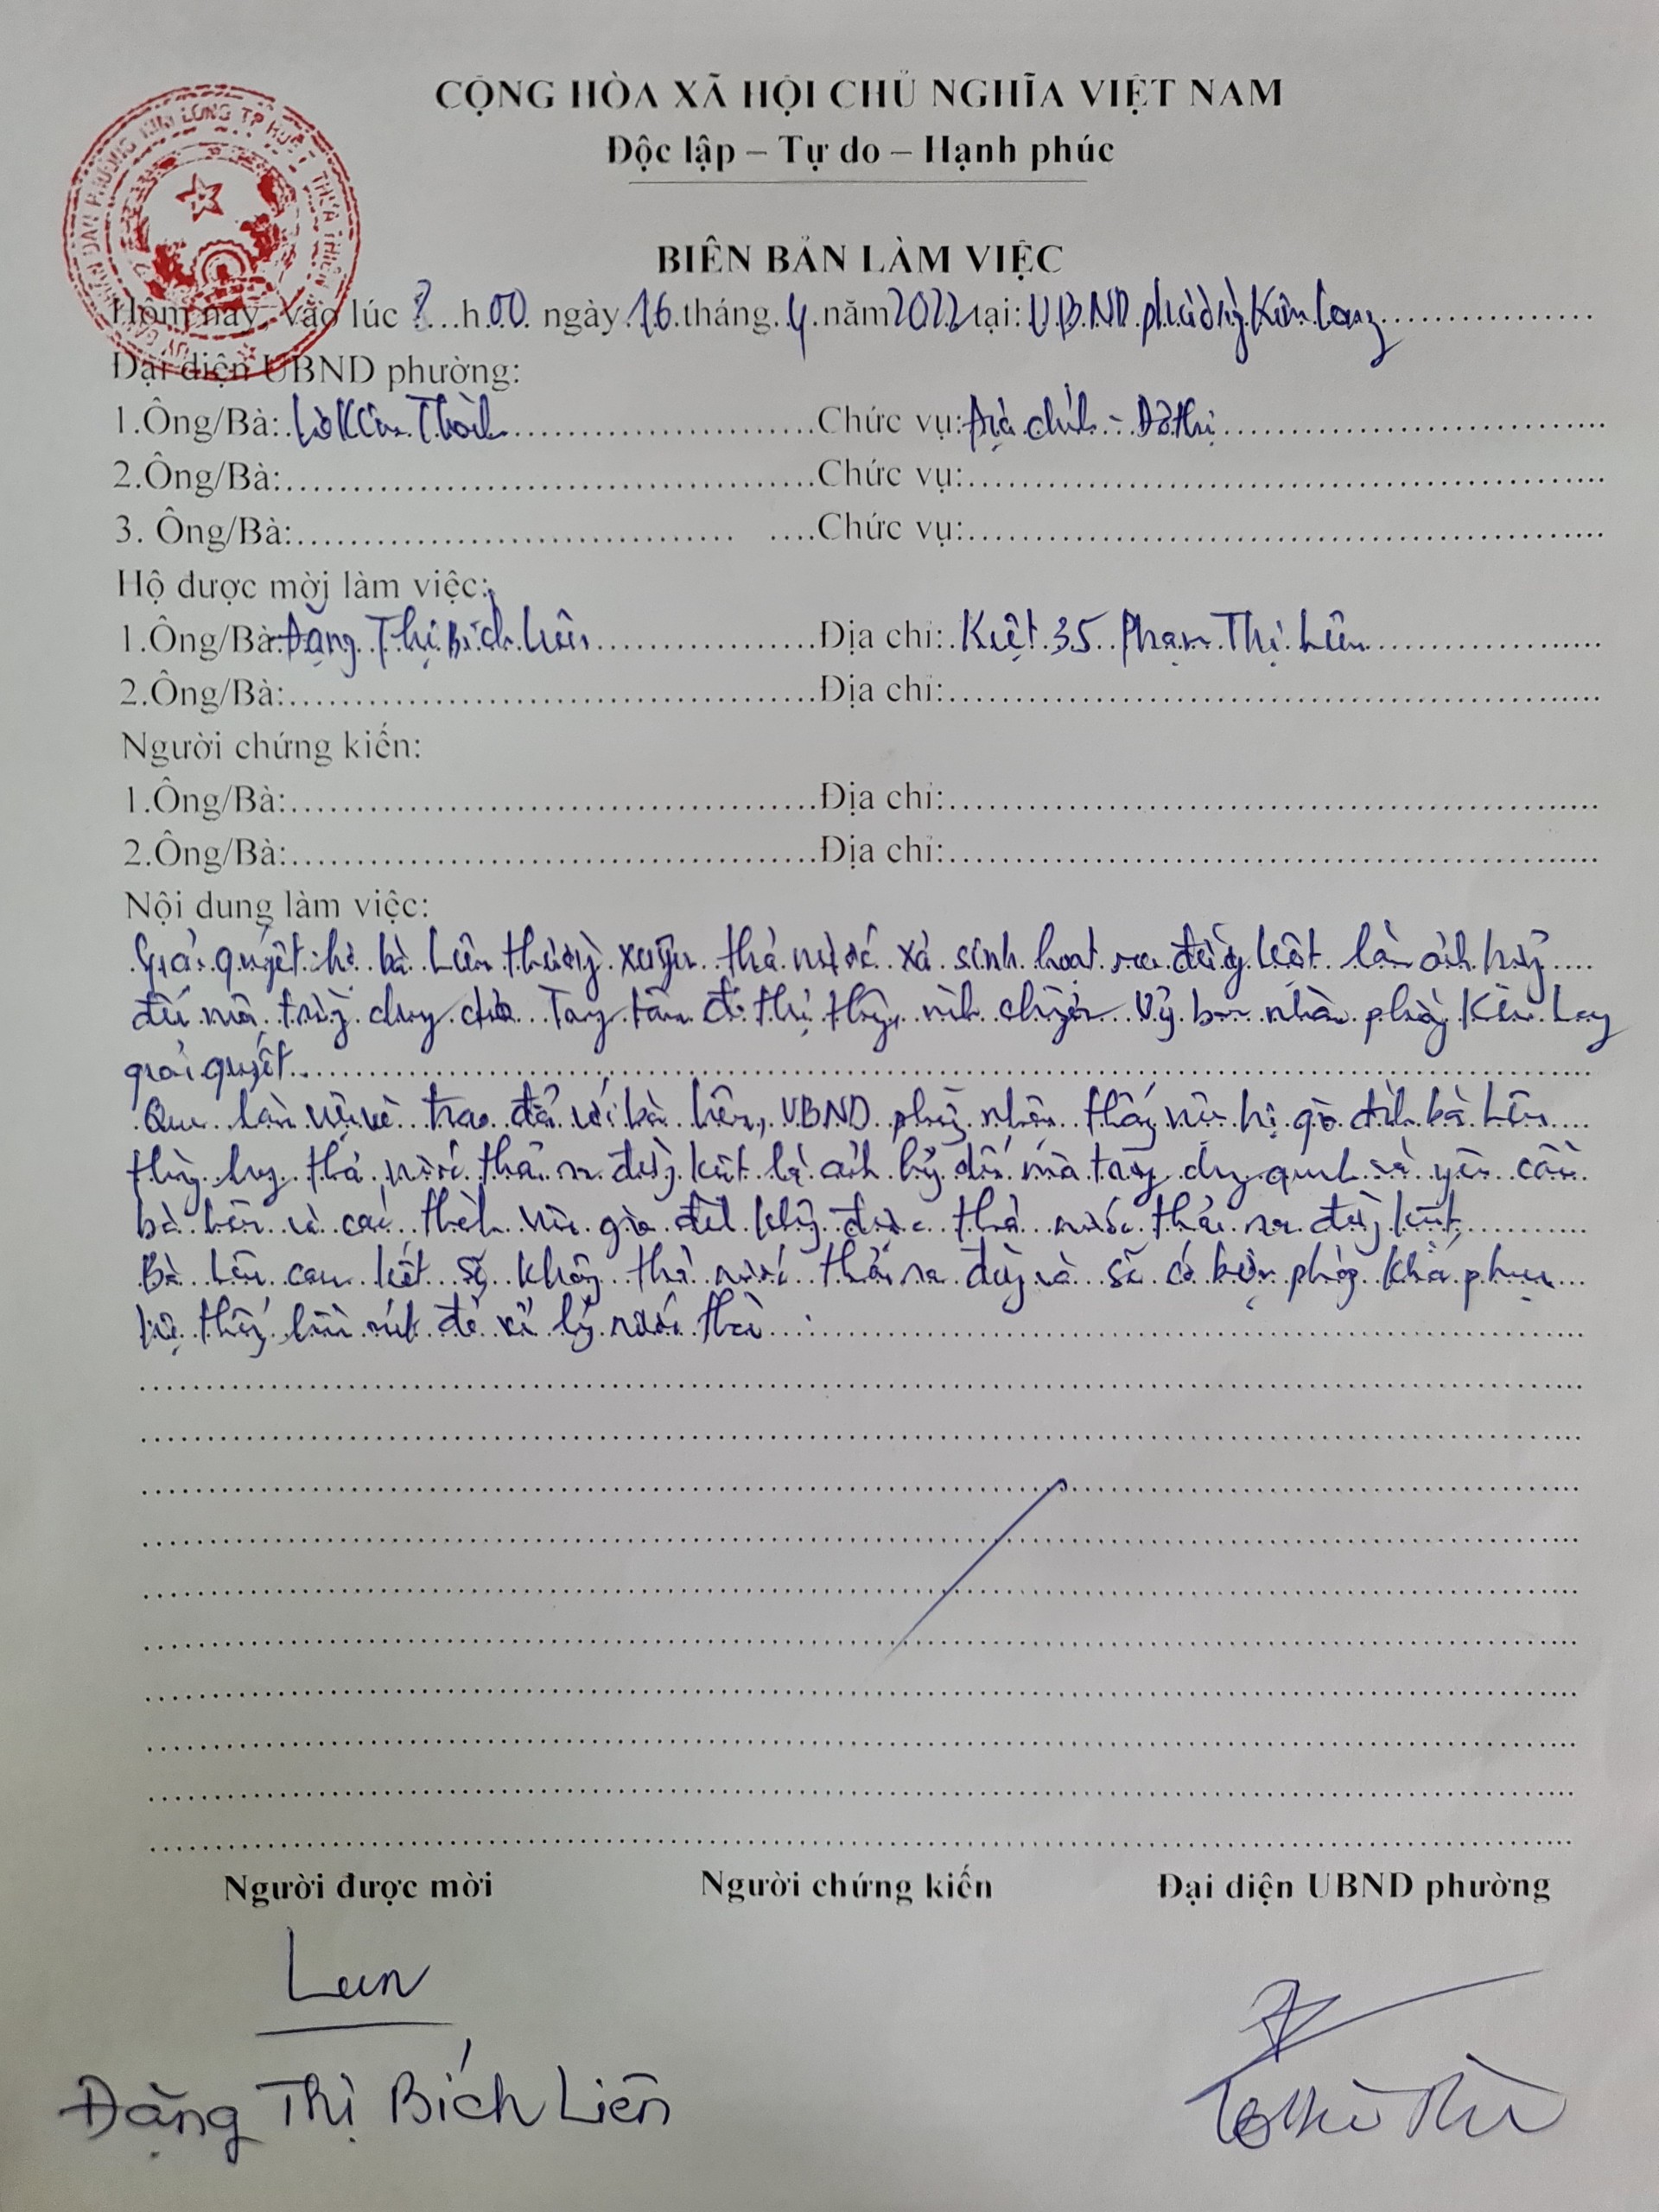 CỘNG HÒA XÃ HỘI CHỦ NGHĨA VIỆT NAM
Độc lập – Tự do – Hạnh phúc
BIÊN BẢN LÀM VIỆC
Hôm nay, vào lúc h.00 ngày 16 tháng 4 năm 2022 tại: U.B.ND phường Kim Long
Đại diện UBND phường:
1.Ông/Bà: Chức vụ: Địa chính - Đô thị
2.Ông/Bà: Chức vụ:
3. Ông/Bà: Chức vụ:
Hộ được mời làm việc:
1.Ông/Bà: Đặng Thị Bích Liên Địa chỉ: Kiệt 35 Phạm Thị Liên
2.Ông/Bà: Địa chỉ:
Người chứng kiến:
1.Ông/Bà: Địa chỉ:
2.Ông/Bà: Địa chỉ:
Nội dung làm việc:
Giải quyết hộ bà Liên thường xuyên thả nước xả sinh hoạt ra đường kiệt làm ảnh hưởng
đến môi trường chung Trung tâm đô thị thông minh chuyển Uỷ ban nhân phường Kim Long
giải quyết.
Qua làm việc và trao đổi với bà Liên, UBND phường nhận thấy việc hộ gia đình bà Liên
thả nước thải ra đường kiệt là ảnh hưởng đến môi trường xung quanh và yêu cầu
bà Liên và các thành viên gia đình không được thả nước thải ra đường kiệt,
Bà Liên cam kết sẽ không thả nước thải ra đường và sẽ có biện pháp khắc phục
hệ thống hầm rút để xử lý nước thải.
Người được mời Người chứng kiến Đại diện UBND phường
Liên
Đặng Thị Bích Liên